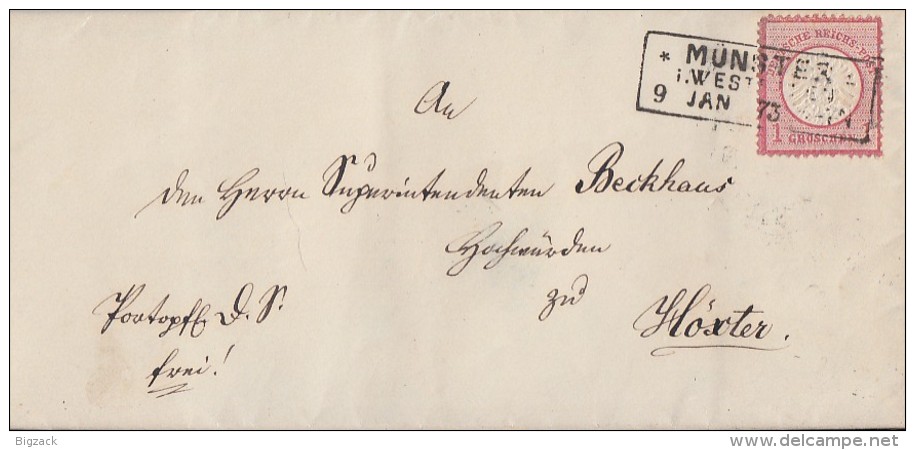 * MÜNSTER
i. WEST
9 JAN 73
DEUTSCHE REICHS-POST
1 GROSCHEN 1
An
den Herrn Superintendenten Beckhaus
Hochwürden
zu
Höxter.
Portopfl. D. S.
frei!
Bigzack
www.delcampe.net